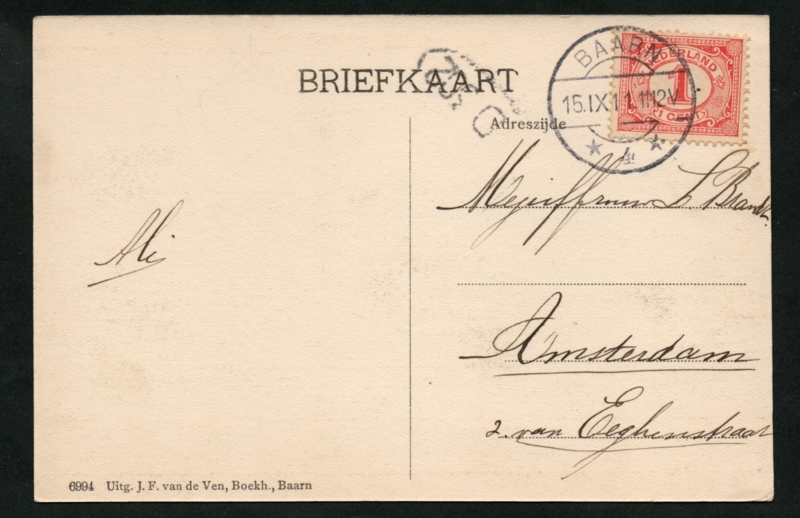 BRIEFKAART
Adreszijde
NEDERLAND
1
1 CENT
BAARN
15.IX.11.1112V
4
Mejuffrouw L. Brandt.
Ali
Amsterdam
2. van Eeghenstraat
6994 Uitg. J. F. van de Ven, Boekh., Baarn